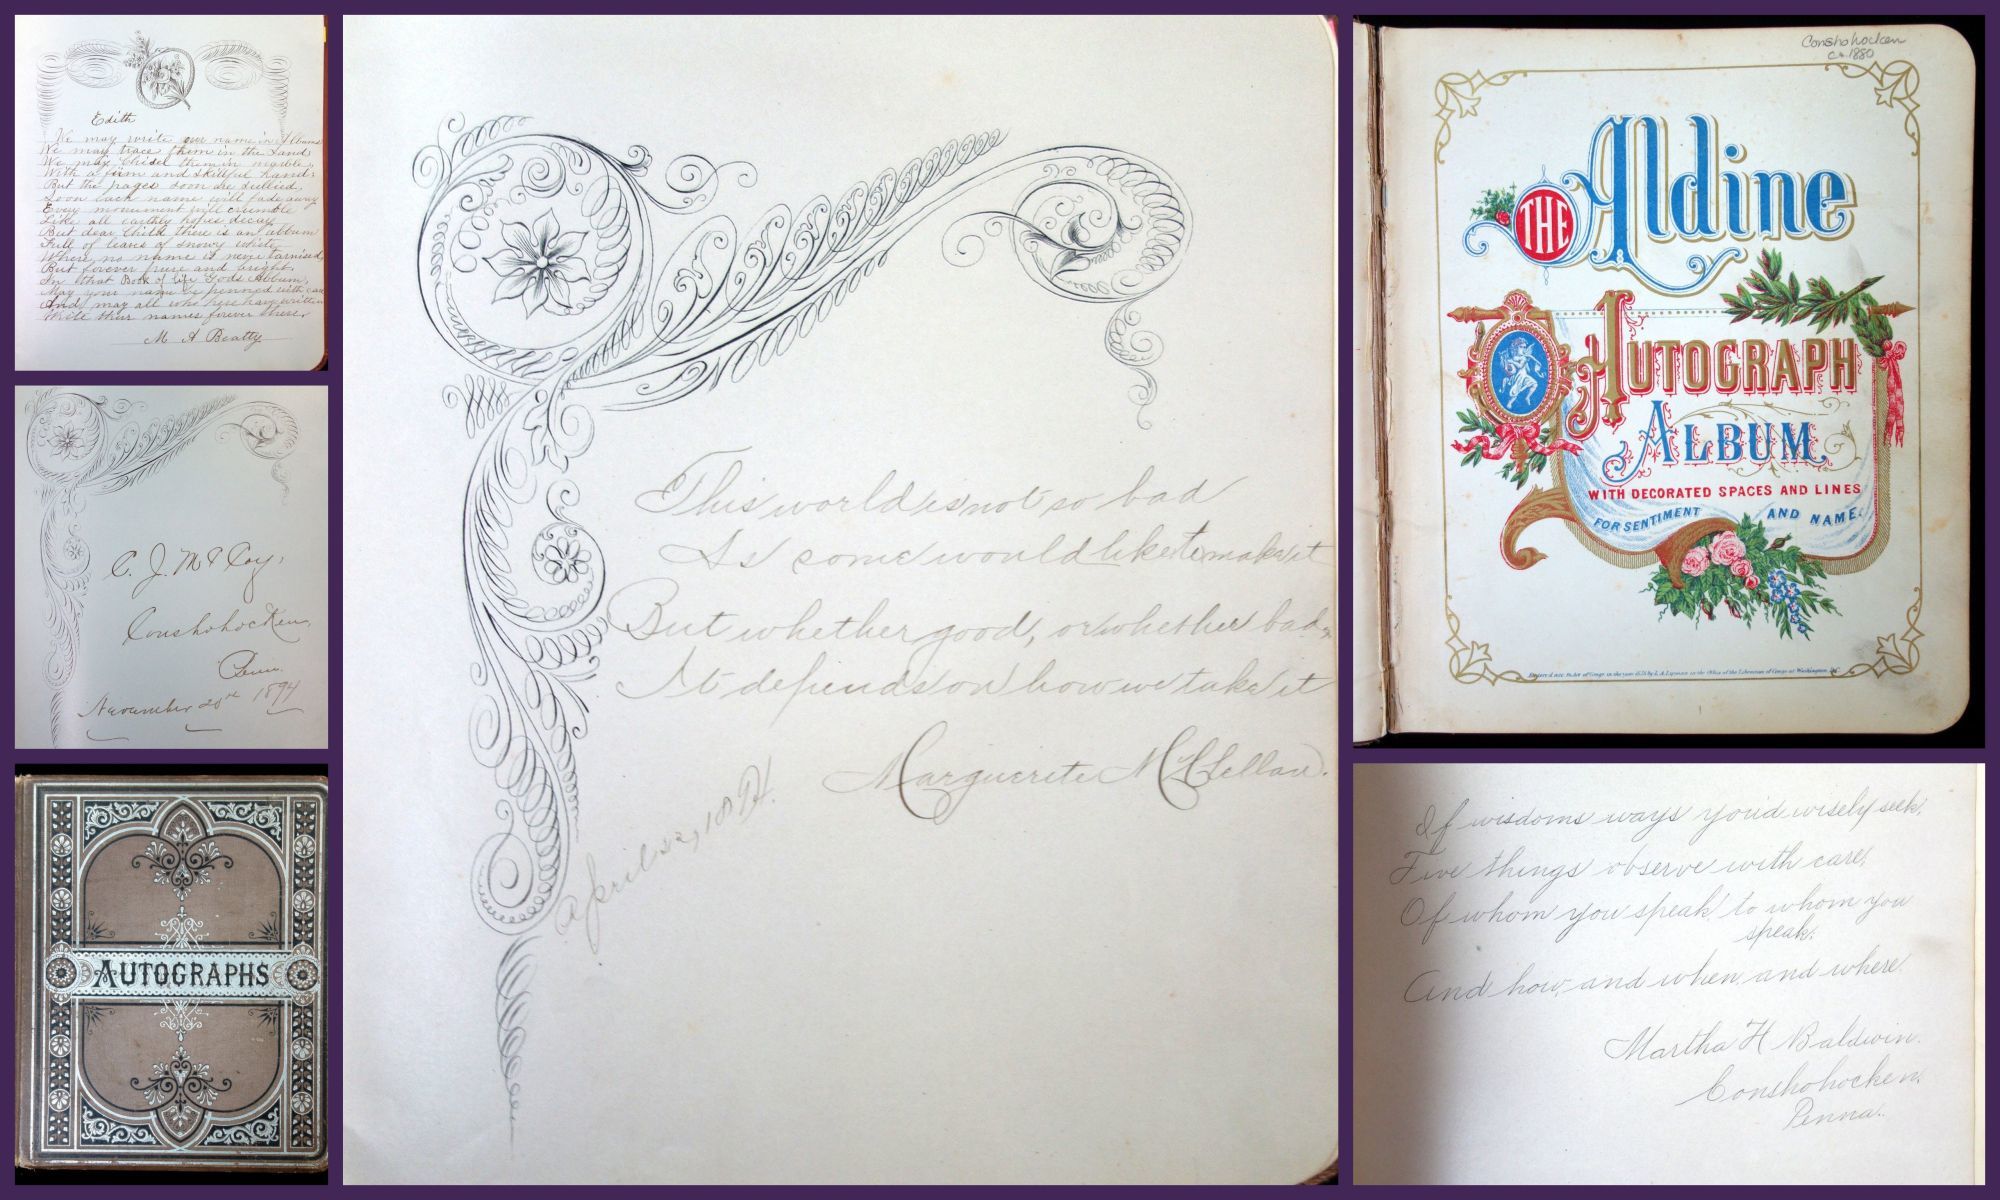 Edith
We may write our name in Albums
We may trace them in the Sand
We may Chisel them in marble,
With a firm and skillful hand;
But the pages soon are sullied,
Soon each name will fade away
Every monument will crumble
Like all earthly hopes decay
But dear Child there is an album
Full of leaves of snowy white
Where no name is never tarnised
But forever pure and bright.
In that Book of life Gods Album,
May your name be penned with care
And may all who here have written
Write their names forever there.
M A Beatty
C. J. McCoy,
Conshohocken,
Penn.
November 20th 1894
AUTOGRAPHS
This world is not so bad
As some would like to make it
But whether good, or whether bad,
It depends on how we take it
Marguerite McClellan.
April 22, 1894.
Conshohocken
Ca 1880
THE Aldine
AUTOGRAPH
ALBUM
WITH DECORATED SPACES AND LINES
FOR SENTIMENT AND NAME.
If wisdoms ways you'd wisely seek,
Five things observe with care,
Of whom you speak, to whom you
speak,
And how, and when, and where.
Martha H Baldwin.
Conshohocken.
Penna.